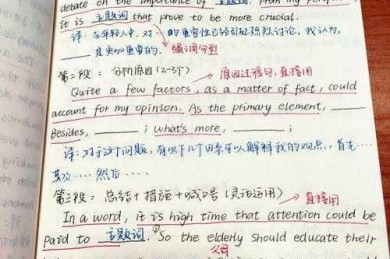 debate on the importance of 主题词. From my
it is 主题词 that prove to be more crucial.
译: 在年轻人中, 对 的重要性已经引起热烈讨论, 我认为,
是更加重要的. 强调句型
第二段: 分析原因(2-3个) 原因过渡句, 直接用
Quite a few factors, as a matter of fact, could
account for my opinion. As the primary element, ____
Besides, ____; what's more, ____;
译: 对于这个问题, 有以下几个因素可以解释我的观点. 首先...
其次... 然后...
第三段: 总结+措施+喊口号(灵活运用) 直接用
In a word, it is high time that attention could be
paid to 主题词. ① So the elderly should educate their
父母